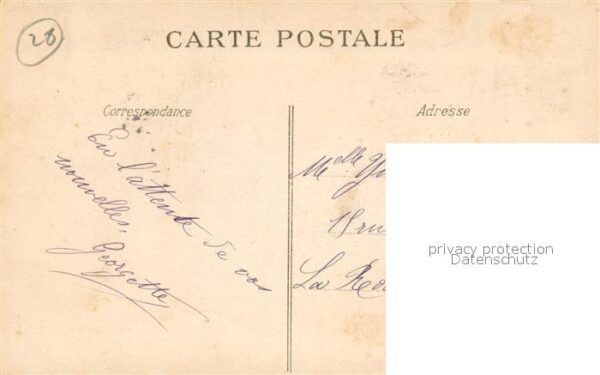 28
CARTE POSTALE
Correspondance
Adresse
En l'attente de vos
nouvelles,
Georgette
Melle
18 ru
La Ro
privacy protection
Datenschutz